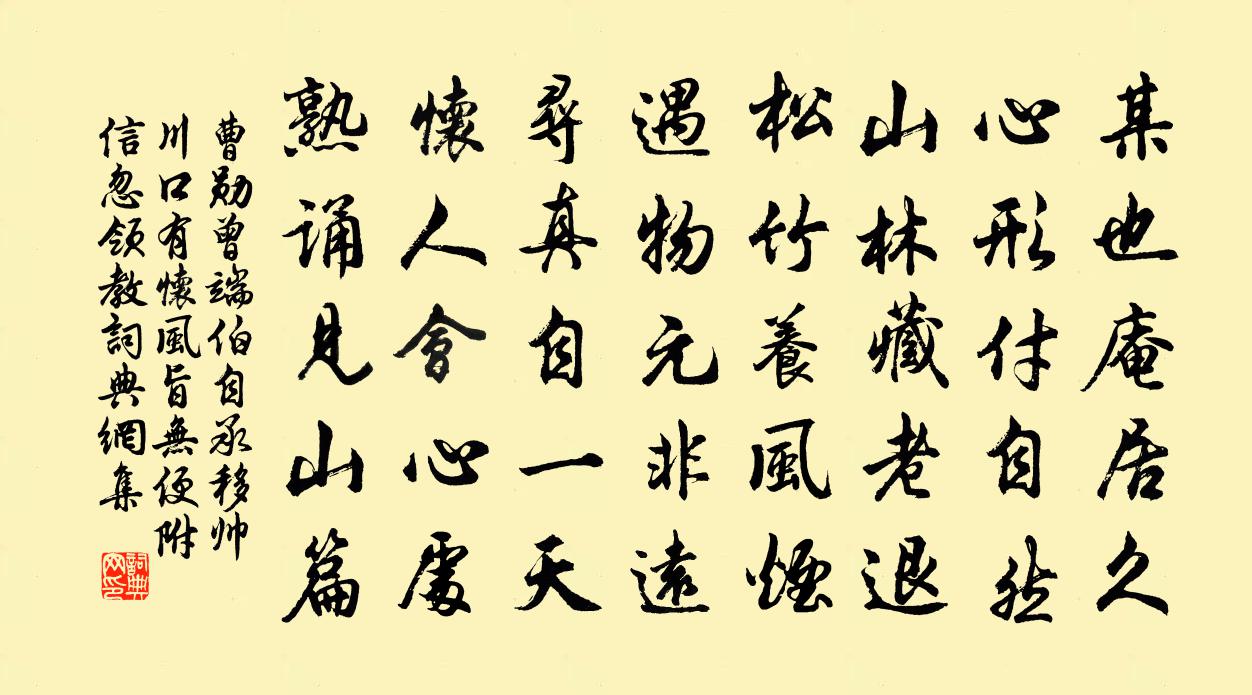 某也庵居久
心形付自然
山林藏老退
松竹養風煙
遇物元非遠
尋真自一天
懷人會心處
熟誦見山篇
曹勛曾端伯自承移帅
川口有懷風旨無便附
信忽領教詞典網集
詞典网印